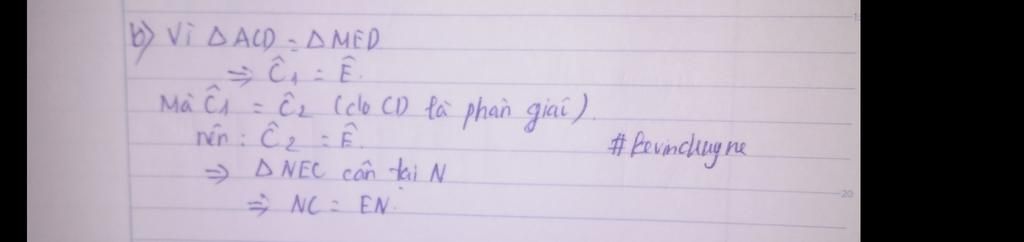 b) Vì △ACD = △MED
⇒ Ĉ₁ = Ê.
Mà Ĉ₁ = Ĉ₂ (do CD là phân giác).
nên : Ĉ₂ = Ê.
#kevinchuyne
⇒ △NEC cân tại N
⇒ NC = EN.
20